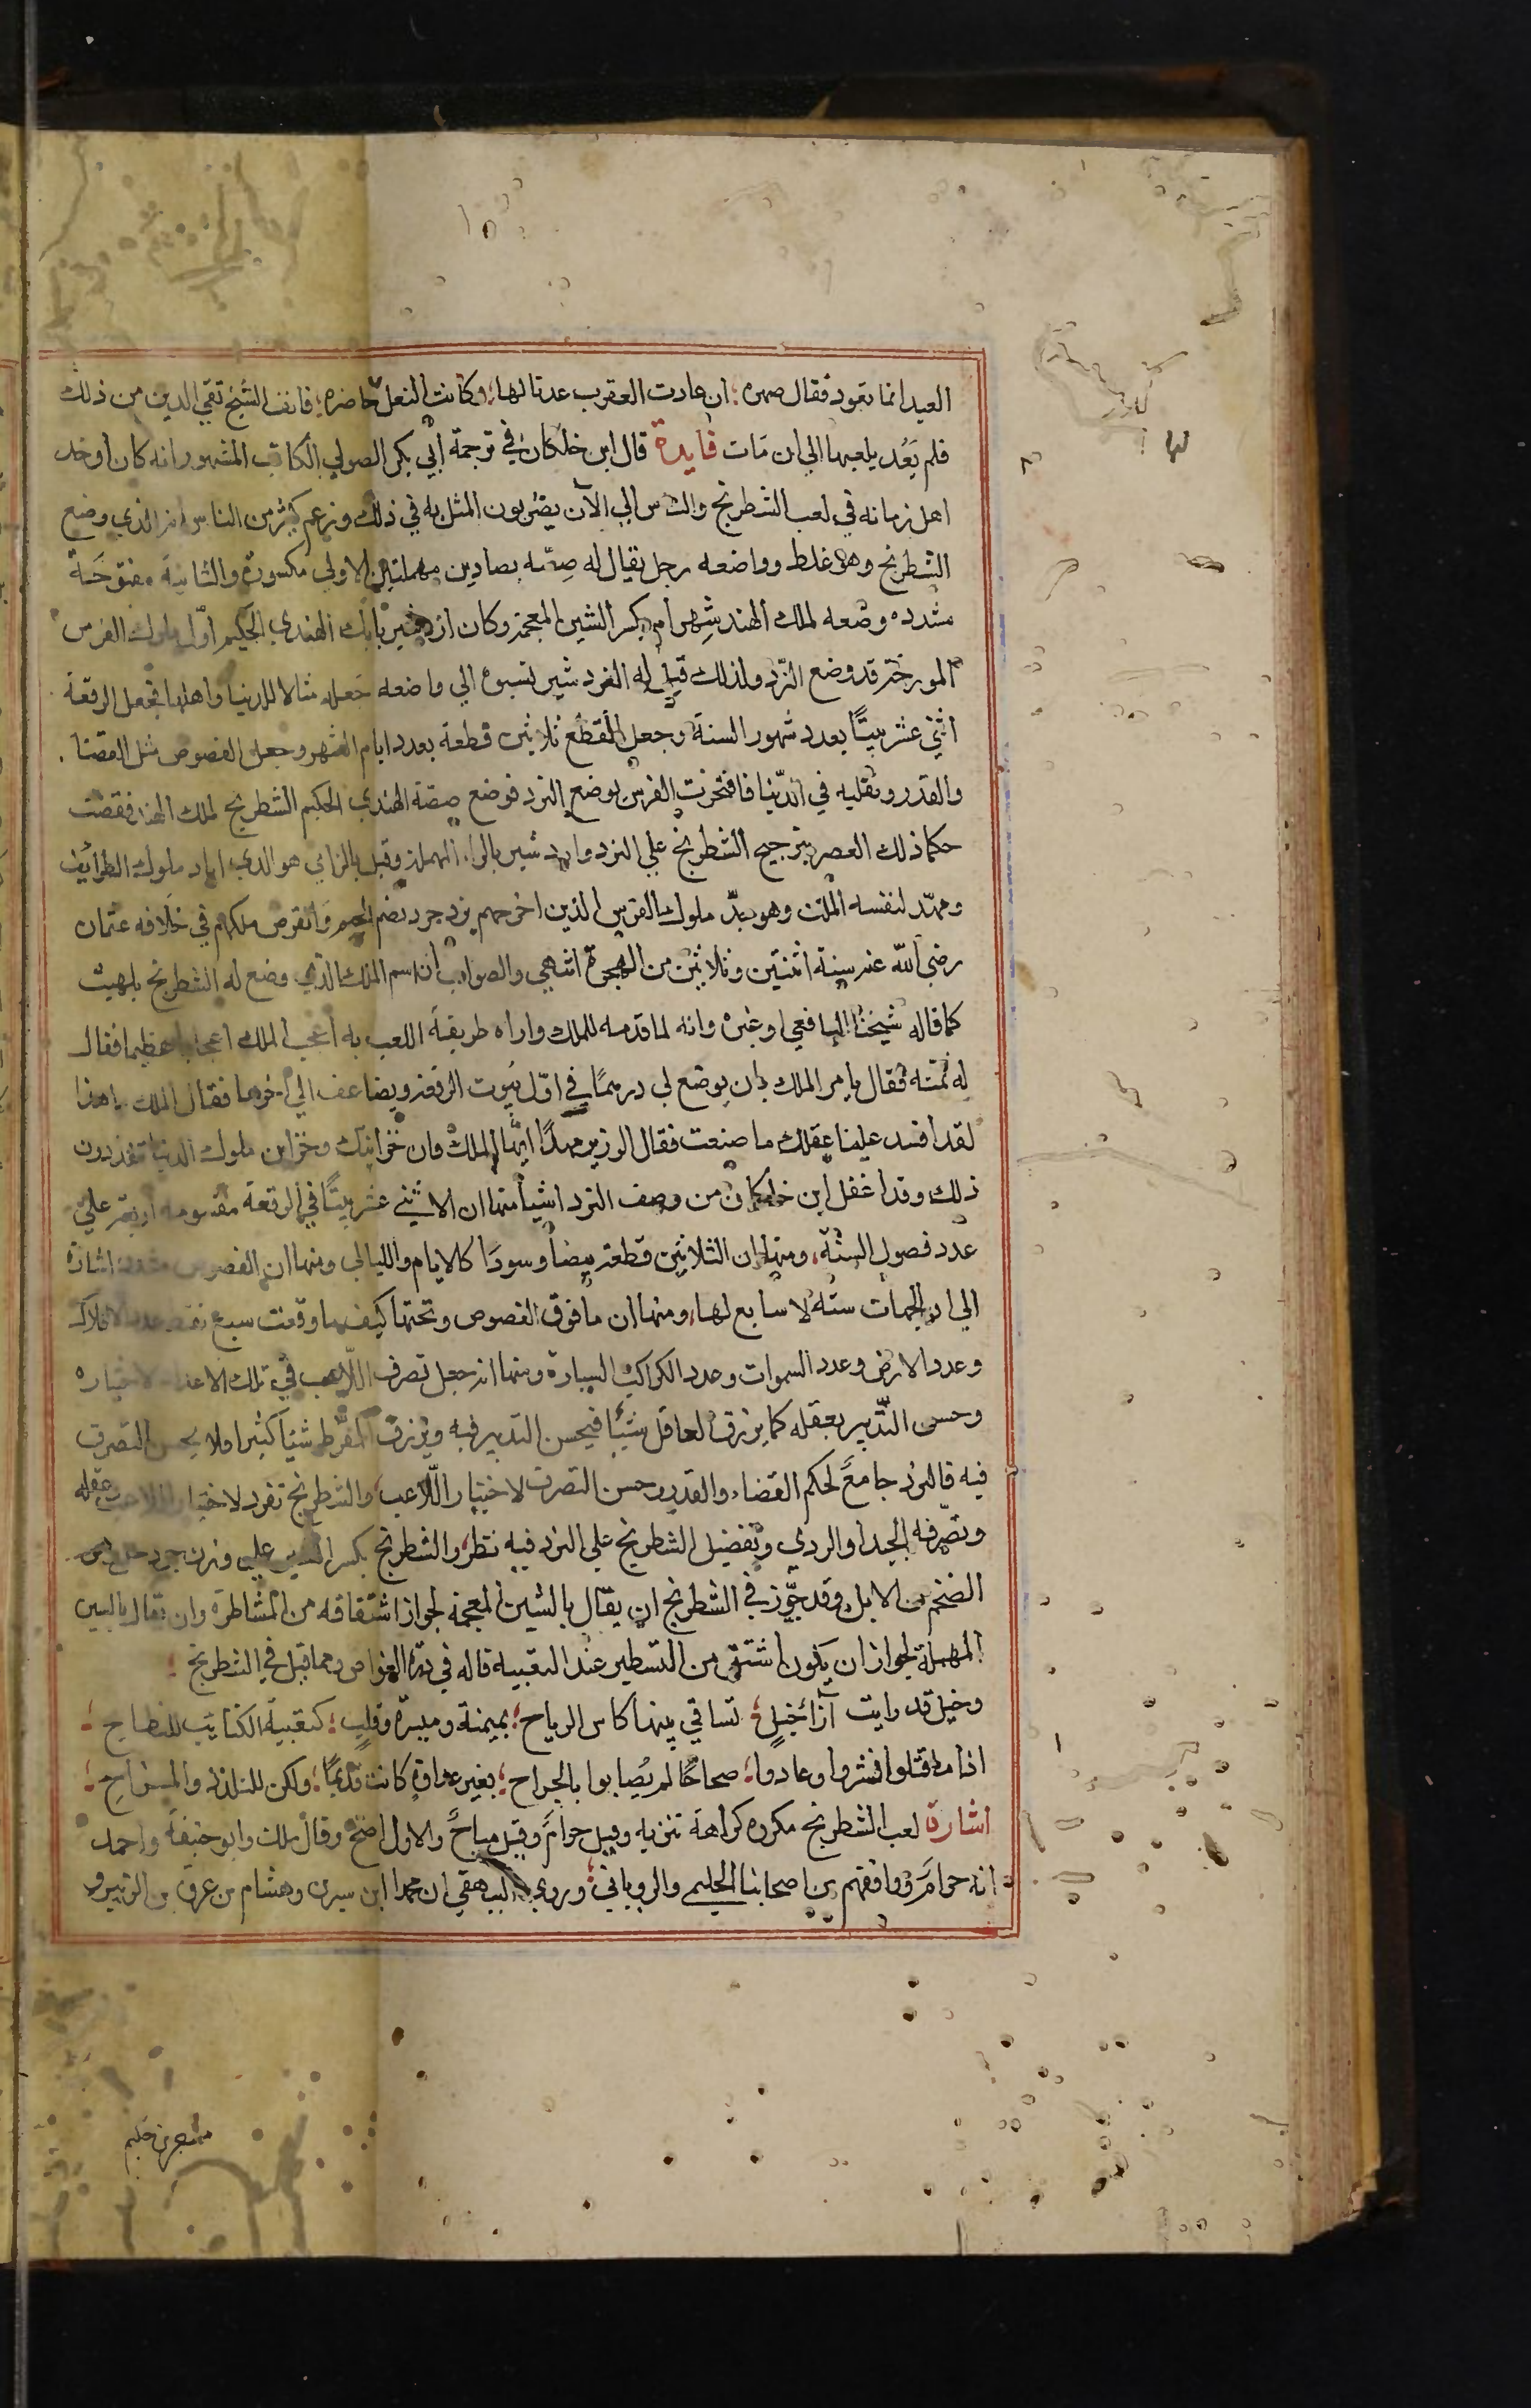 العيد انما تعود فقال صهره ؛ ان عادت العقرب عدنا لها ؛ وكانت النعل حاضره ؛ فانف الشيخ تقي الدين من ذلك
فلم يَعُد يلعبها الي ان مَات فايدة قال ابن خلكان في ترجمة ابي بكر الصولي الكاتب المشهور انه كان أوحد
اهل زمانه في لعب الشطرنج والناس الي الآن يضربون المثل به في ذلك وزعم كثير من الناس انه الذي وضع
الشطرنج وهو غلط وواضعه رجل يقال له صِصّه بصادين مهملتين الاولي مكسورة والثانية مفتوحَة
مشدده وضعه لملك الهند شِهرام بكسر الشين المعجمة وكان ازدشير بابك الهندي الحكيم اوّل ملوك الفرس
المورخة قد وضع النّرد ولذلك قيل له النرد شير نسبوه الي واضعه جَعله مثالا للدنيا واهلها فجعل الرقعة
اثني عشر بيتًا بعدد شهور السنة وجعل القطع ثلاثين قطعة بعدد ايام الشهر وجعل الفصوص مثل القضا
والقدر وتقلبه في الدّنيا فافتخرت الفرس بوضع النرد فوضع صصّة الهندي الحكيم الشطرنج لملك الهند فقضت
حكما ذلك العصر بترجيح الشطرنج علي النرد واردشير بالراء المهملة وقيل بالزاي هو الذي اباد ملوك الطوائف
ومهّد لنفسه الملك وهو جدّ ملوك الفرس الذين اخرهم يزدجرد بضم الجيم وَانقرض ملكهم في خلافه عثمان
رضي الله عنه سنة اثنتين وثلاثين من الهجرة انتهي والصواب ان اسم الملك الذي وضع له الشطرنج بلهيث
كما قاله شيخنا اليافعي وغيره وانه لما قدمه للملك واراه طريقة اللعب به أعجب الملك اعجابا عظيما فقال
له تمنّه فقال يامر الملك بان يوضع لي درهمًا في اوّل بيُوت الرقعة ويضاعف الي اخرها فقال الملك ما هذا
لقد افسد علينا عقلك ما صنعت فقال الوزير مهلًا ايّها الملك فان خزاينك وخزاين ملوك الدنيا تنفد دون
ذلك وقد اغفل ابن خلكان من وصف النرد اشيا منها ان الاثني عشر بيتًا في الرقعة مقسومة اربعة علي
عدد فصول السنّة، ومنها ان الثلاثين قطعة بيضًا وسودًا كالايام والليالي ومنها ان الفصوص مسدسة اشارة
الي ان الجهات سته لا سابع لها، ومنها ان ما فوق الفصوص وتحتها كيفما وقعت سبع نقط عدد الافلاك
وعدد الارض وعدد السموات وعدد الكواكب السيارة ومنها انه جعل تصرف اللّاعب في تلك الاعداد لاختياره
وحسن التّدبير بعقله كما يرزق العاقل شيئًا فيحسن التدبير فيه ويُرزق المفرّط شيئا كثيرا ولا يحسن التصرف
فيه فالنرد جامعً لحكم القضاء والقدر وحسن التصرف لاختيار اللّاعب، والشطرنج تفرد لاختيار اللاعب وعقله
وتصرفه الجيد او الردي وتفضيل الشطرنج علي النرد فيه نظر، والشطرنج بكسر الشين علي وزن جردحل وهو
الضخم من الابل وقد جُوّز في الشطرنج ان يقال بالشين المعجمة لجواز اشتقاقه من المشاطرة وان يقال بالسين
المهملة لجواز ان يكون اشتق من التسطير عند التعبية قاله في درة الغواص ومما قيل في الشطرنج ؛
وخيل قد رايت آزا خيل ؛ تساقي بينها كاس الرياح ؛ بميمنة وميسرة وقلب ؛ كتعبية الكتايب للنطاح ؛
اذا ما قتلوا نشروا وعادوا ؛ صحاحًا لم يُصابوا بالجراح ؛ بغير عداوة كانت قديمًا ؛ ولكن للتلذذ والمزاح ؛
اشارة لعب الشطرنج مكروه كراهة تنزيه وقيل حرامً وقيل مباحً والاول اصحّ وقال ملك وابو حنيفَة واحمد
انه حرامَ ووافقهم من اصحابنا الحليمي والروياني ؛ وروي البيهقي ان محمد ابن سيرين وهشام بن عروة بن الزبير و